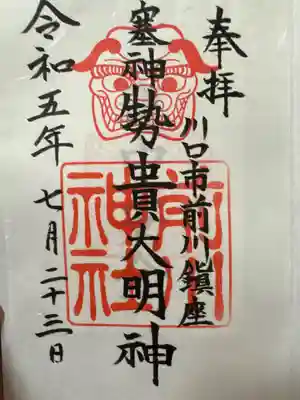 奉拝
川口市前川鎮座
塞神勢貴大明神
令和五年七月二十三日
前川神社